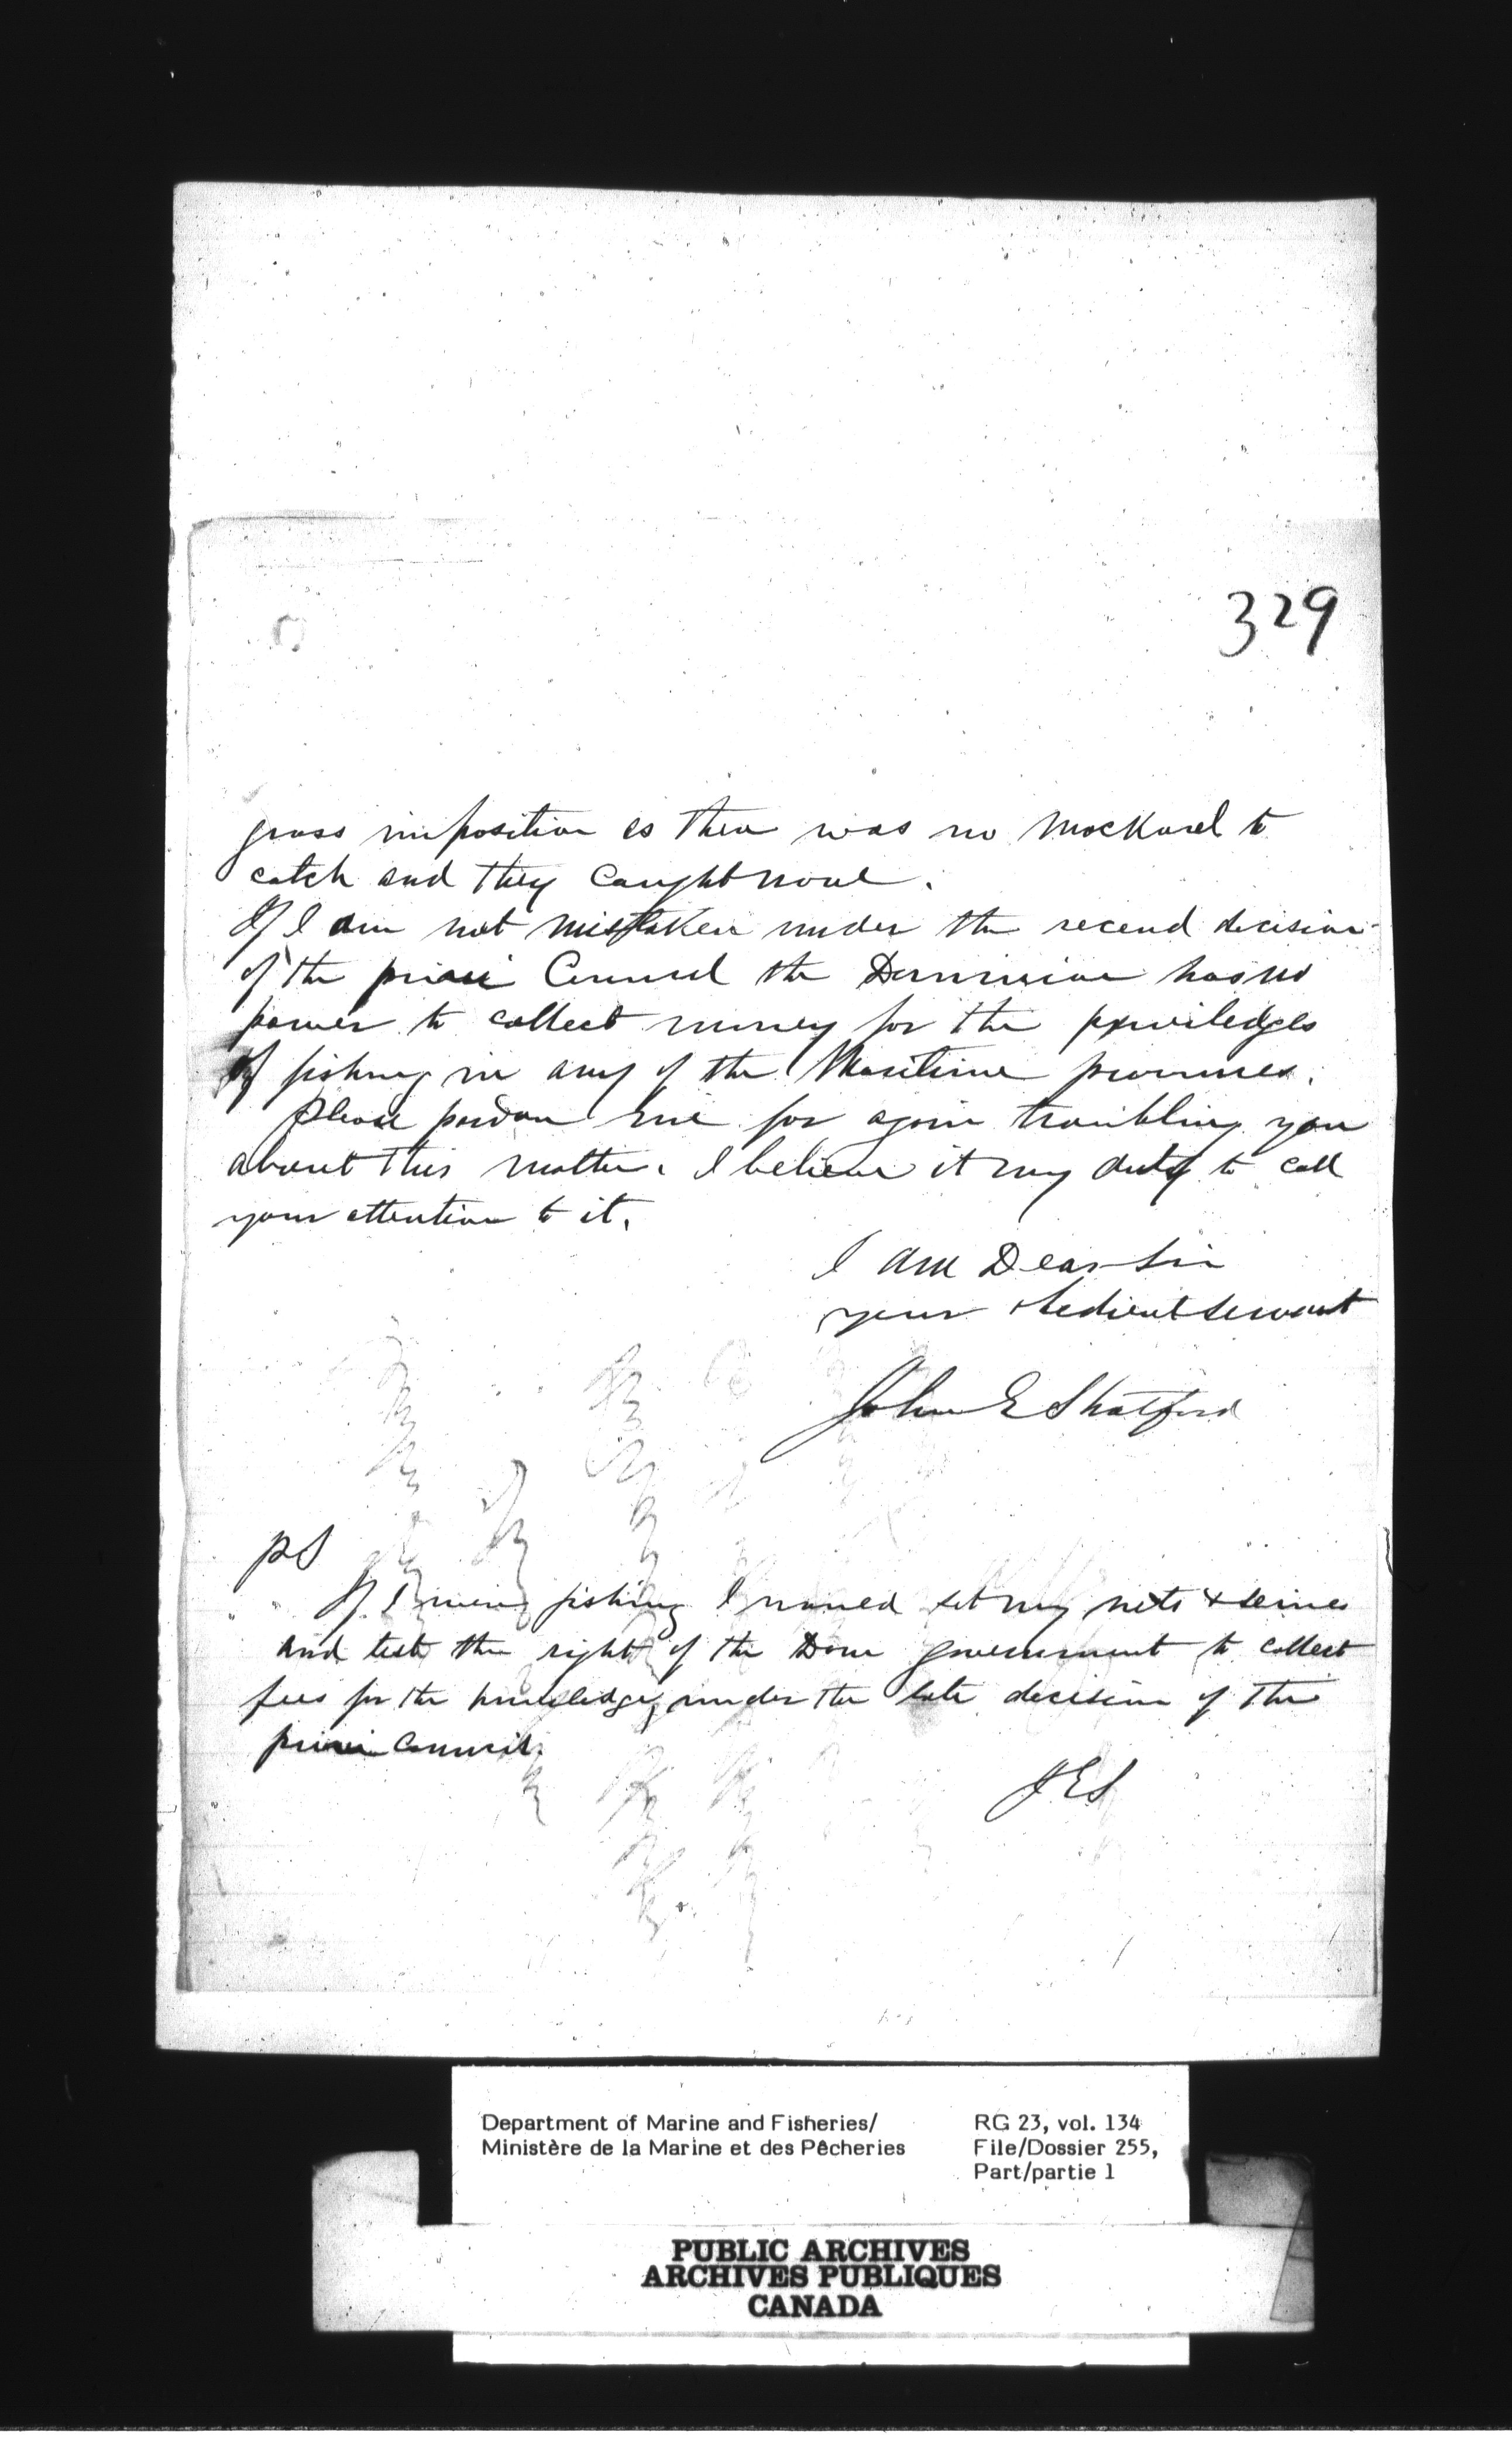 329
gross imposition as there was no Mackarel to
catch and they caught none.
If I am not mistaken under the recend decision
of the privi Council the Dominion has no
power to collect money for the priviledges
of fishing in any of the Maritime provinces.
Please pardon me for again troubling you
about this matter. I believe it my duty to call
your attention to it.
I am Dear Sir
your obedient servant
John E Shatford
pS
If I were fishing I would set my nets & seines
and test the right of the Dom government to collect
fees for the priviledge, under the late decision of the
privi Council.
JES
Department of Marine and Fisheries/
Ministère de la Marine et des Pêcheries
RG 23, vol. 134
File/Dossier 255,
Part/partie 1
PUBLIC ARCHIVES
ARCHIVES PUBLIQUES
CANADA